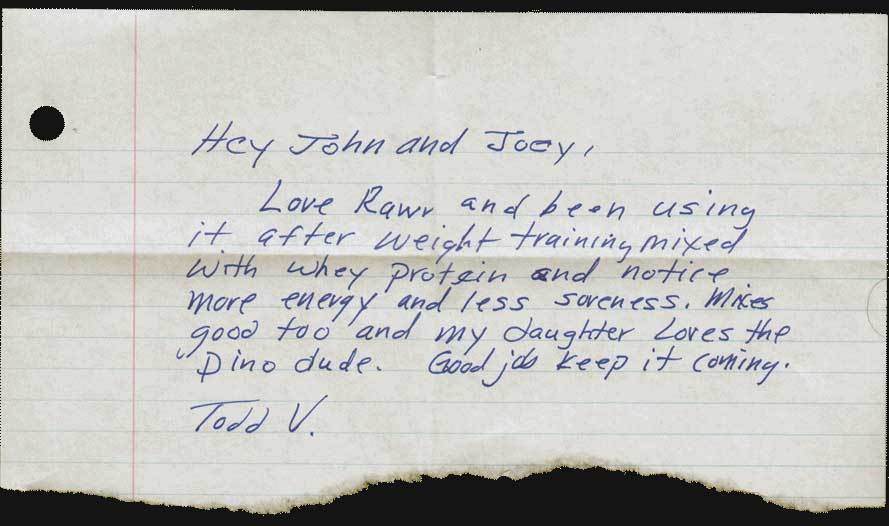 Hey John and Joey,
Love Rawr and been using
it after weight training mixed
with whey protein and notice
more energy and less soreness. Mixes
good too and my daughter Loves the
"Dino dude. Good job keep it coming.
Todd V.